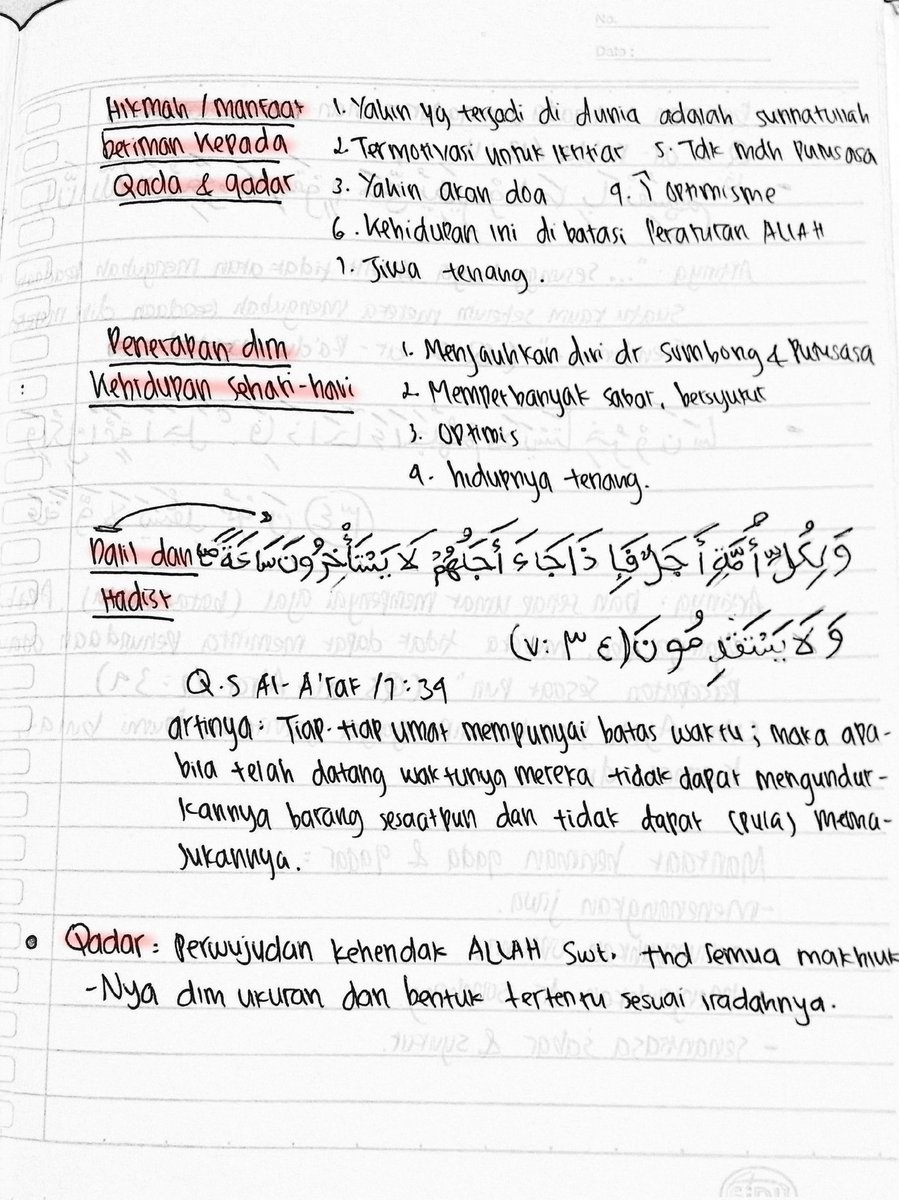 No.
Date:
Hikmah / manfaat
beriman kepada
Qada & qadar
1. Yakin yg terjadi di dunia adalah sunnatullah
2. Termotivasi untuk ikhtiar 5. Tdk mdh putusasa
3. Yakin akan doa 4. ↑ optimisme
6. Kehidupan ini dibatasi Peraturan ALLAH
7. Jiwa tenang.
Penerapan dlm
Kehidupan sehari-hari
:
1. Menjauhkan diri dr sombong & putusasa
2. Memperbanyak sabar, bersyukur
3. Optimis
4. hidupnya tenang.
Dalil dan
Hadist
وَلِكُلِّ أُمَّةٍ أَجَلٌ فَإِ ذَا جَاءَ أَجَلُهُمْ لَا يَسْتَأْخِرُونَ سَاعَةً
وَلَا يَسْتَقْدِمُونَ (٧: ٣٤)
Q.S Al-A'raf /7:34
artinya: Tiap-tiap umat mempunyai batas waktu; maka apa-
bila telah datang waktunya mereka tidak dapat mengundur-
kannya barang sesaatpun dan tidak dapat (pula) mema-
jukannya.
• Qadar: Perwujudan kehendak ALLAH Swt. thd semua makhluk
-Nya dlm ukuran dan bentuk tertentu sesuai iradahnya.